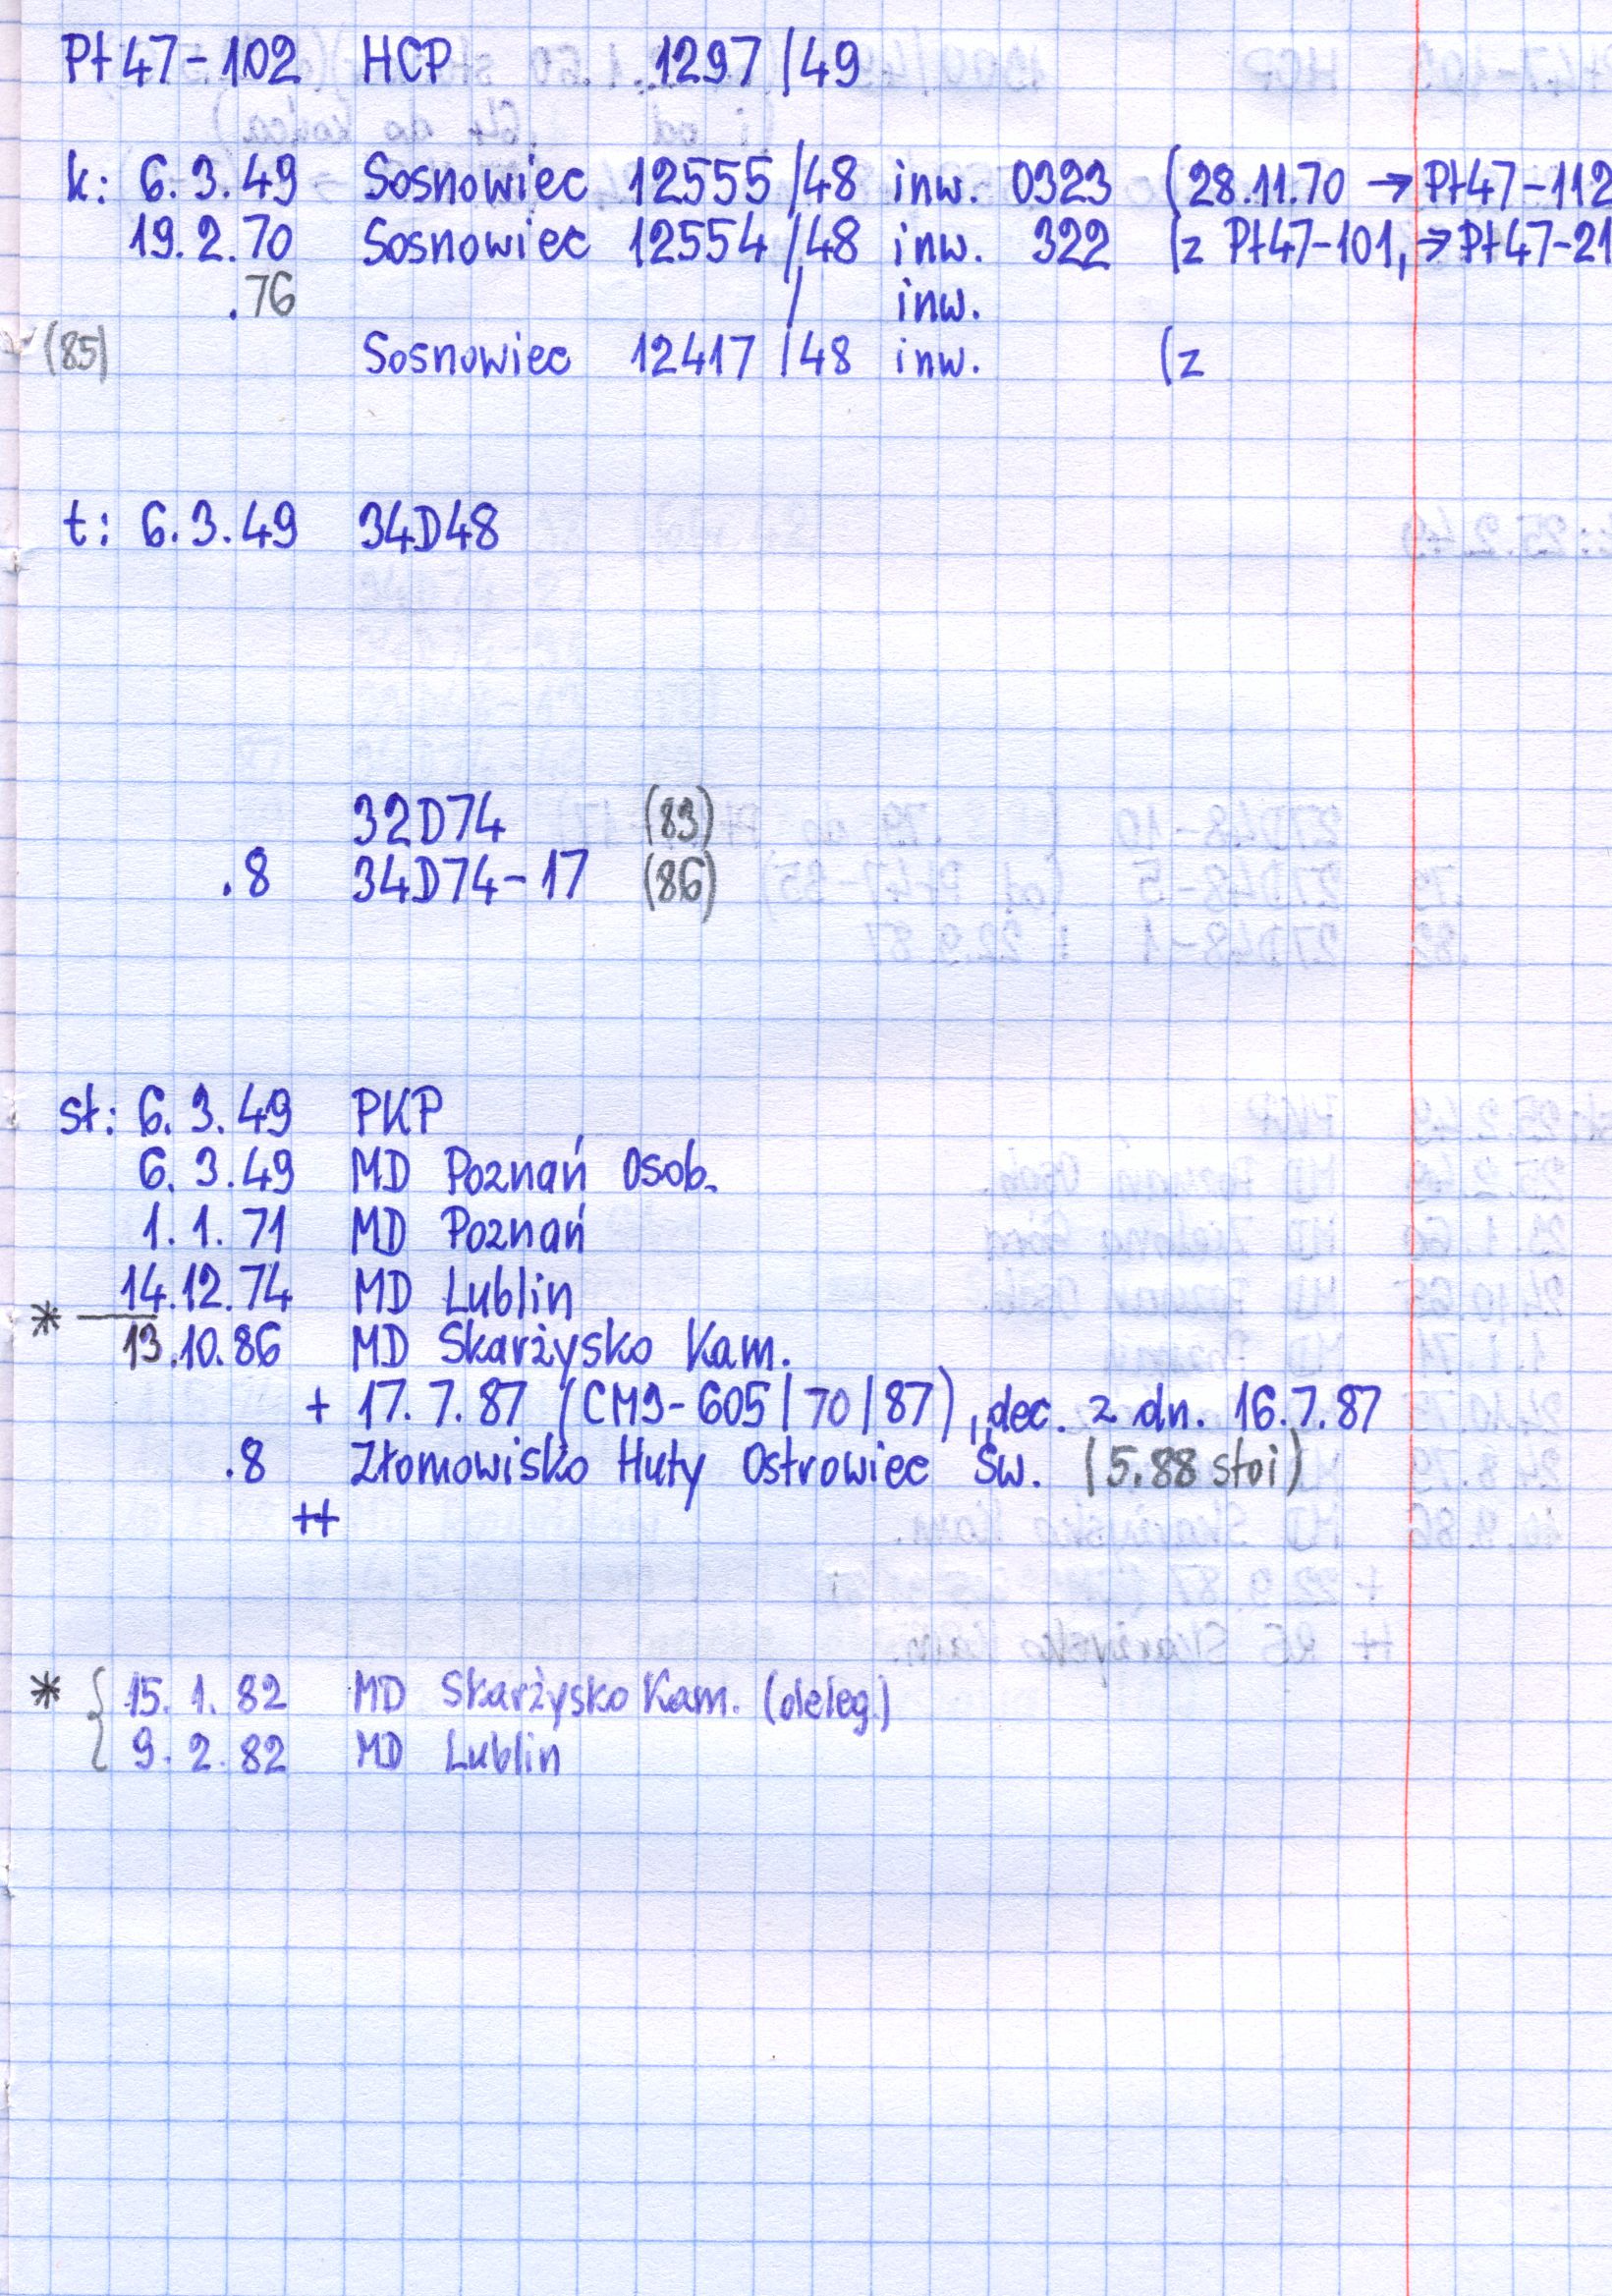 Pt47-102 HCP 1297/49
k: 6.3.49 Sosnowiec 12555/48 inw. 0323 (28.11.70 → Pt47-112
19.2.70 Sosnowiec 12554/48 inw. 322 (z Pt47-101, → Pt47-21
.76 / inw.
(85) Sosnowiec 12417/48 inw. (z
t: 6.3.49 34D48
32D74 (83)
.8 34D74-17 (86)
st: 6.3.49 PKP
6.3.49 MD Poznań Osob.
1.1.71 MD Poznań
14.12.74 MD Lublin
*
13.10.86 MD Skarżysko Kam.
+ 17.7.87 (CM9-605/70/87), dec. z dn. 16.7.87
.8 Złomowisko Huty Ostrowiec Św. (5.88 stoi)
++
* { 15.1.82 MD Skarżysko Kam. (deleg.)
9.2.82 MD Lublin